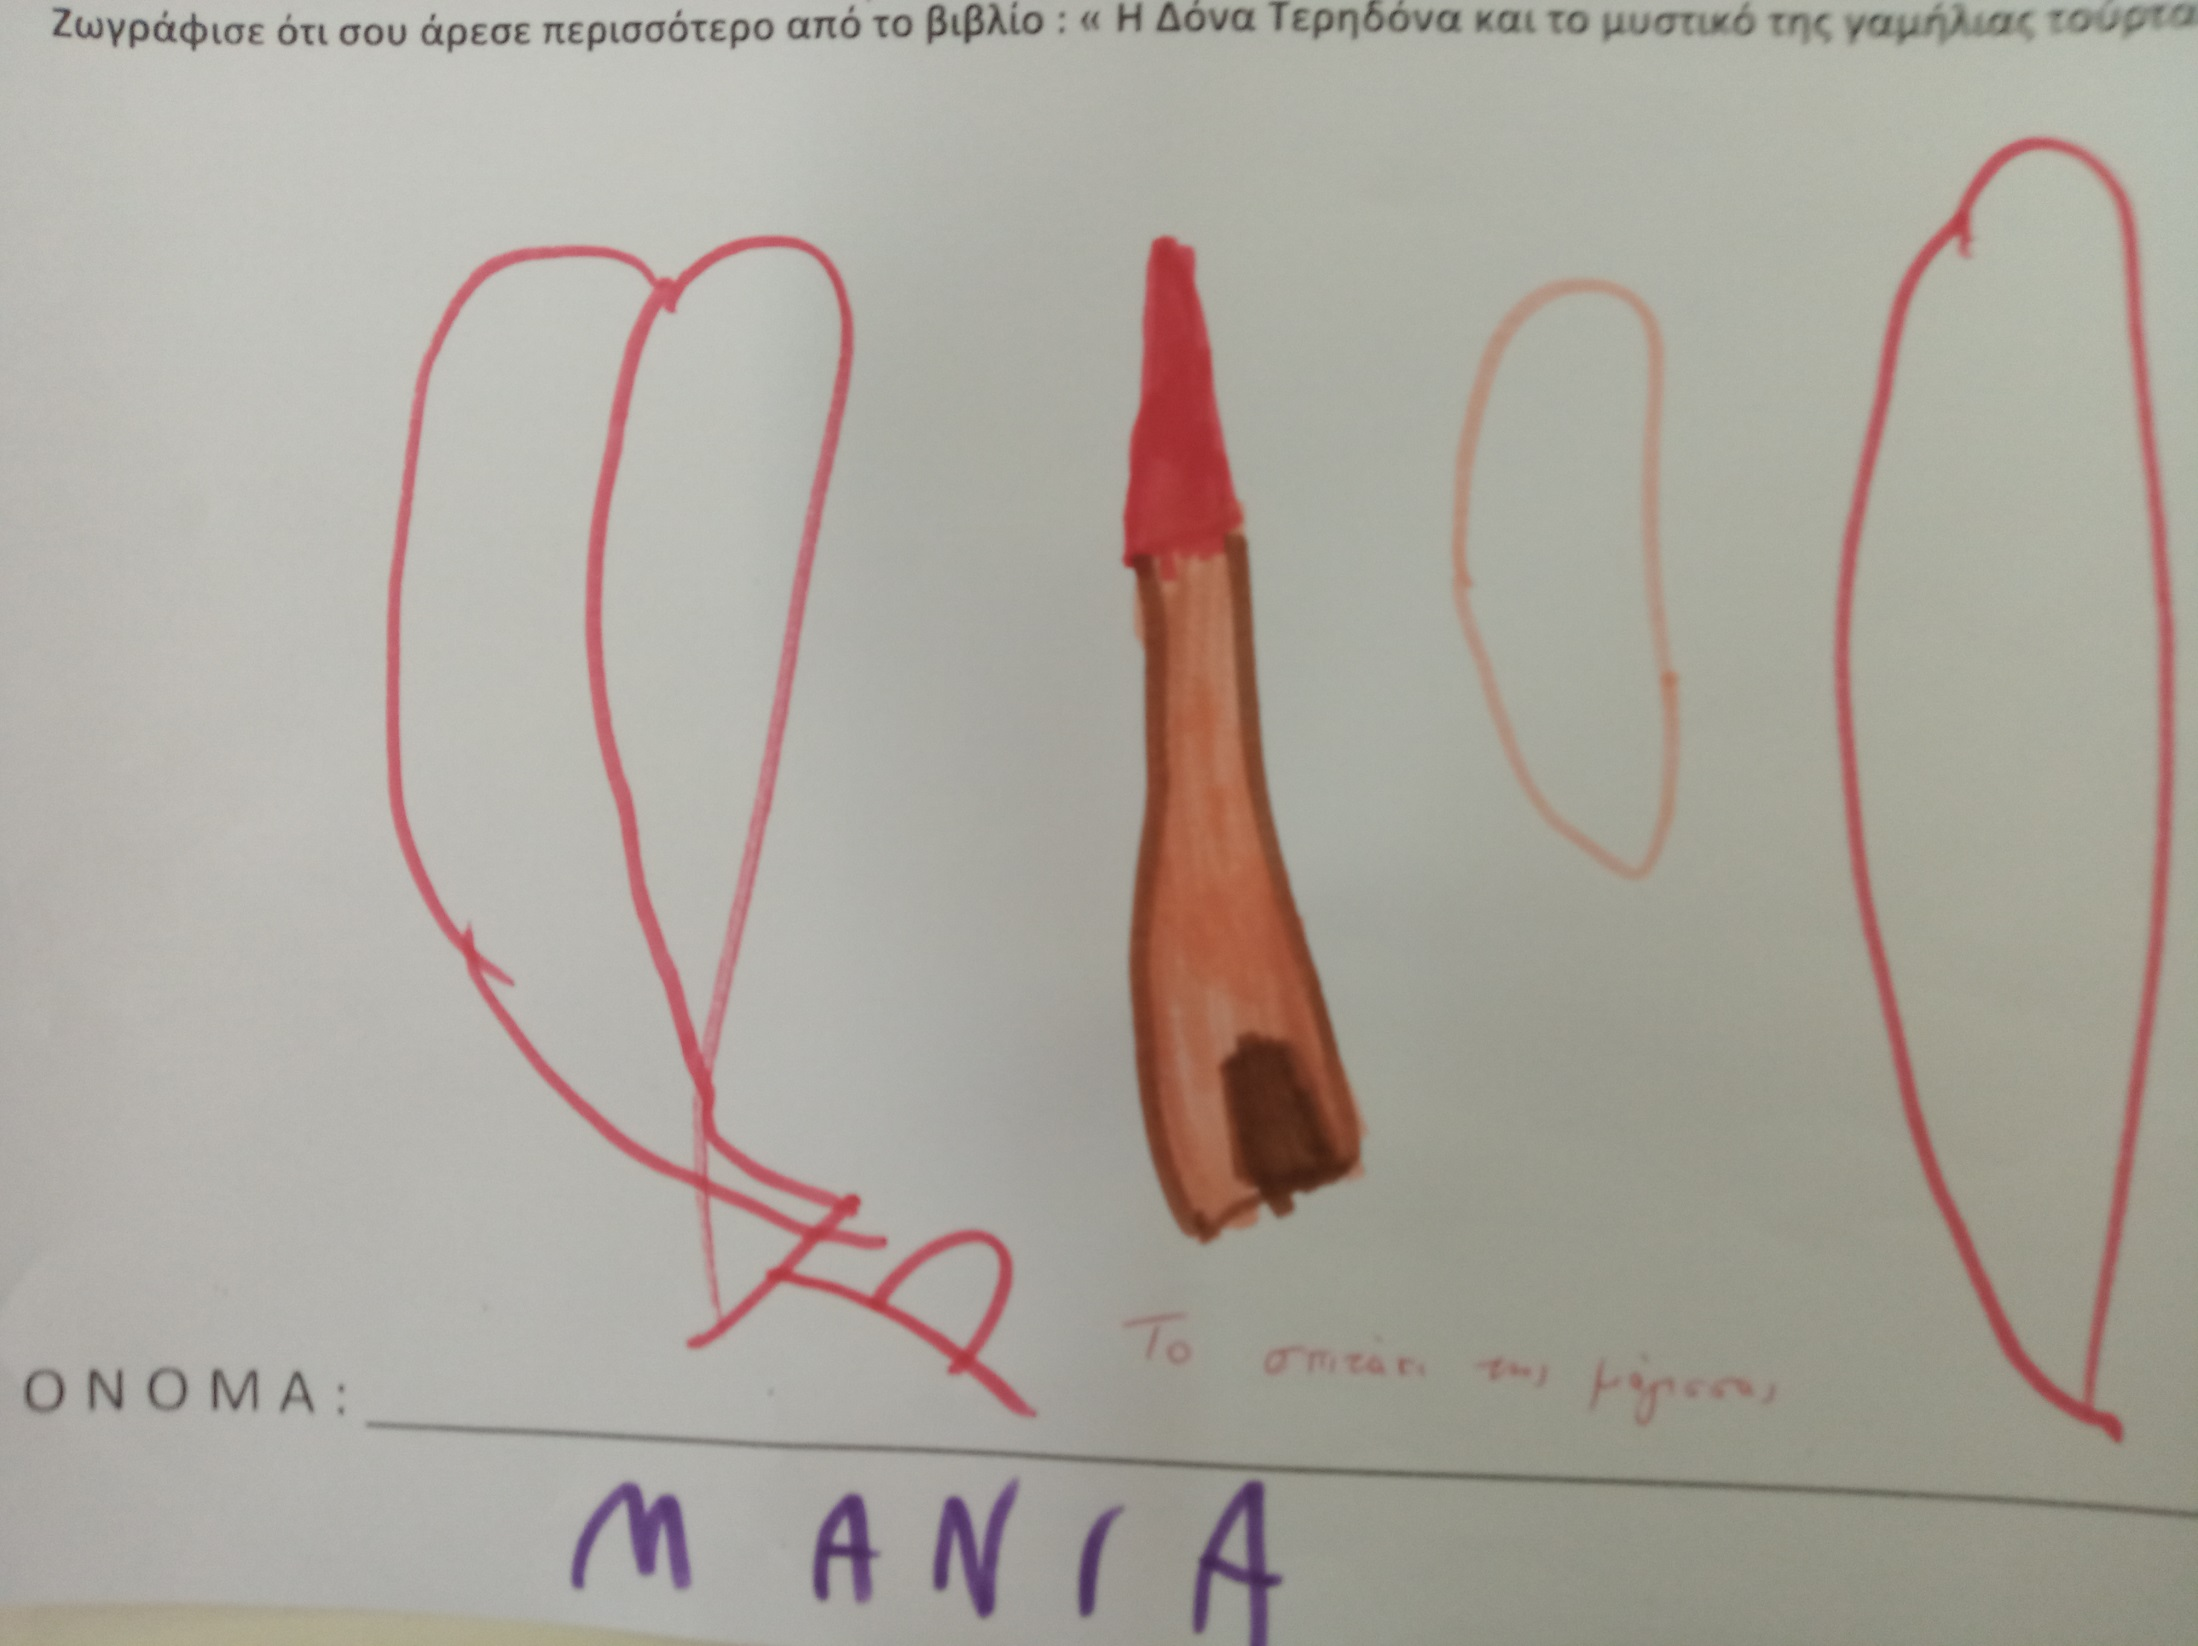 Ζωγράφισε ότι σου άρεσε περισσότερο από το βιβλίο : « Η Δόνα Τερηδόνα και το μυστικό της γαμήλιας τούρτα
Το σπιτάκι της μάγισσας
ΟΝΟΜΑ:
ΜΑΝΙΑ